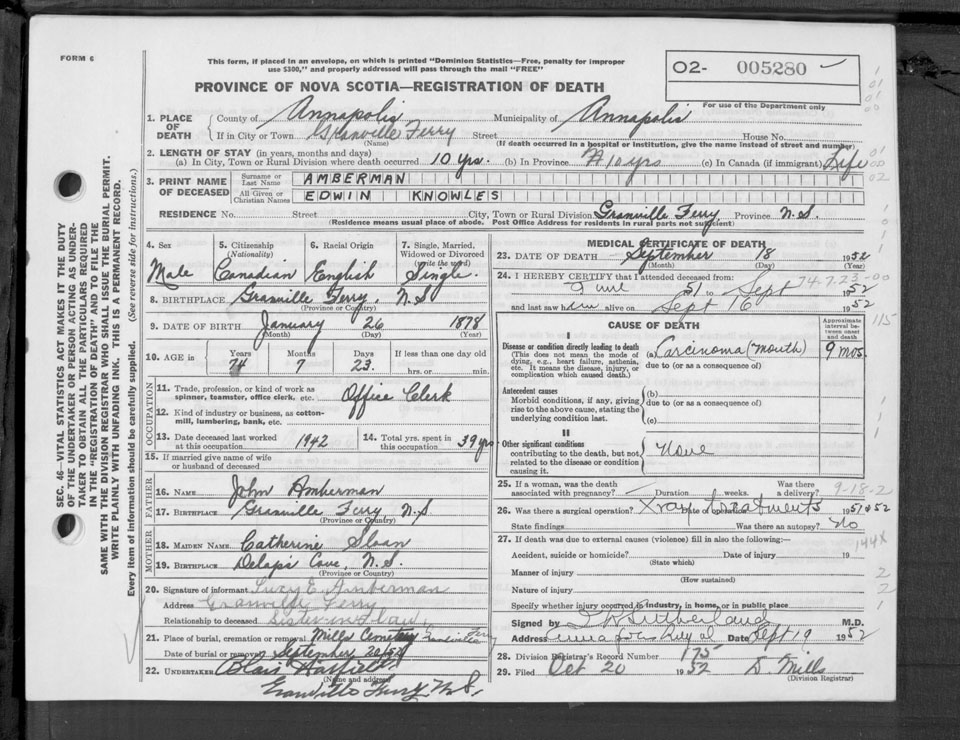 FORM 6
This form, if placed in an envelope, on which is printed "Dominion Statistics—Free, penalty for improper
use $300," and properly addressed will pass through the mail "FREE"
O2- 005280
PROVINCE OF NOVA SCOTIA—REGISTRATION OF DEATH
For use of the Department only
1. PLACE OF DEATH County of Annapolis Municipality of Annapolis
If in City or Town Granville Ferry Street House No.
(Name) (If death occurred in a hospital or institution, give the name instead of street and number)
2. LENGTH OF STAY (in years, months and days)
(a) In City, Town or Rural Division where death occurred 10 yrs. (b) In Province 10 yrs (c) In Canada (if immigrant) Life
3. PRINT NAME OF DECEASED Surname or Last Name AMBERMAN
All Given or Christian Names EDWIN KNOWLES
RESIDENCE No. Street City, Town or Rural Division Granville Ferry, Province N.S.
(Residence means usual place of abode. Post Office Address for residents in rural parts not sufficient)
SEC. 46—VITAL STATISTICS ACT MAKES IT THE DUTY
OF THE UNDERTAKER OR PERSON ACTING AS UNDER-
TAKER TO OBTAIN ALL THE PARTICULARS REQUIRED
IN THE "REGISTRATION OF DEATH" AND TO FILE THE
SAME WITH THE DIVISION REGISTRAR WHO SHALL ISSUE THE BURIAL PERMIT.
WRITE PLAINLY WITH UNFADING INK. THIS IS A PERMANENT RECORD.
Every item of information should be carefully supplied. (See reverse side for instructions.)
4. Sex Male
5. Citizenship (Nationality) Canadian
6. Racial Origin English
7. Single, Married, Widowed or Divorced (write the word) Single
8. BIRTHPLACE Granville Ferry, N.S
(Province or Country)
9. DATE OF BIRTH January 26 1878
(Month) (Day) (Year)
10. AGE in Years 74 Months 7 Days 23. If less than one day old hrs. or min.
OCCUPATION
11. Trade, profession, or kind of work as spinner, teamster, office clerk, etc. Office Clerk
12. Kind of industry or business, as cotton-mill, lumbering, bank, etc.
13. Date deceased last worked at this occupation 1942 14. Total yrs. spent in this occupation 39 yrs
15. If married give name of wife or husband of deceased
FATHER
16. NAME John Amberman
17. BIRTHPLACE Granville Ferry, N.S
(Province or Country)
MOTHER
18. MAIDEN NAME Catherine Sloan
19. BIRTHPLACE Delaps Cove, N.S.
(Province or Country)
20. Signature of informant Lucy E. Amberman
Address Granville Ferry
Relationship to deceased Sister in law
21. Place of burial, cremation or removal Mills Cemetery Granville Ferry
Date of burial or removal September 20/52
22. UNDERTAKER Blair Hatfield
(Name and address)
Granville Ferry N.S.
MEDICAL CERTIFICATE OF DEATH
23. DATE OF DEATH September 18 1952
(Month) (Day) (Year)
24. I HEREBY CERTIFY that I attended deceased from:
June 51 to Sept 1952
74.7.23-00
and last saw him alive on Sept 16 1952
115
CAUSE OF DEATH
Approximate interval between onset and death
I
Disease or condition directly leading to death (a) Carcinoma (mouth) 9 mos.
(This does not mean the mode of dying, e.g., heart failure, asthenia, etc. It means the disease, injury, or complication which caused death.)
due to (or as a consequence of)
Antecedent causes
Morbid conditions, if any, giving rise to the above cause, stating the underlying condition last.
(b)
due to (or as a consequence of)
(c)
II
Other significant conditions
contributing to the death, but not related to the disease or condition causing it.
None
25. If a woman, was the death associated with pregnancy? Duration weeks. Was there a delivery?
9-18-2
26. Was there a surgical operation? Xray treatments Date of operation 1951 & 52
State findings Was there an autopsy? No
27. If death was due to external causes (violence) fill in also the following:—
144X
Accident, suicide or homicide? Date of injury 19
(State which)
Manner of injury
(How sustained)
Nature of injury
Specify whether injury occurred in industry, in home, or in public place
Signed by Sutherland M.D.
Address Annapolis Royal Date Sept 19 1952
28. Division Registrar's Record Number 175
29. Filed Oct 20 1952 D. Mills
(Division Registrar)